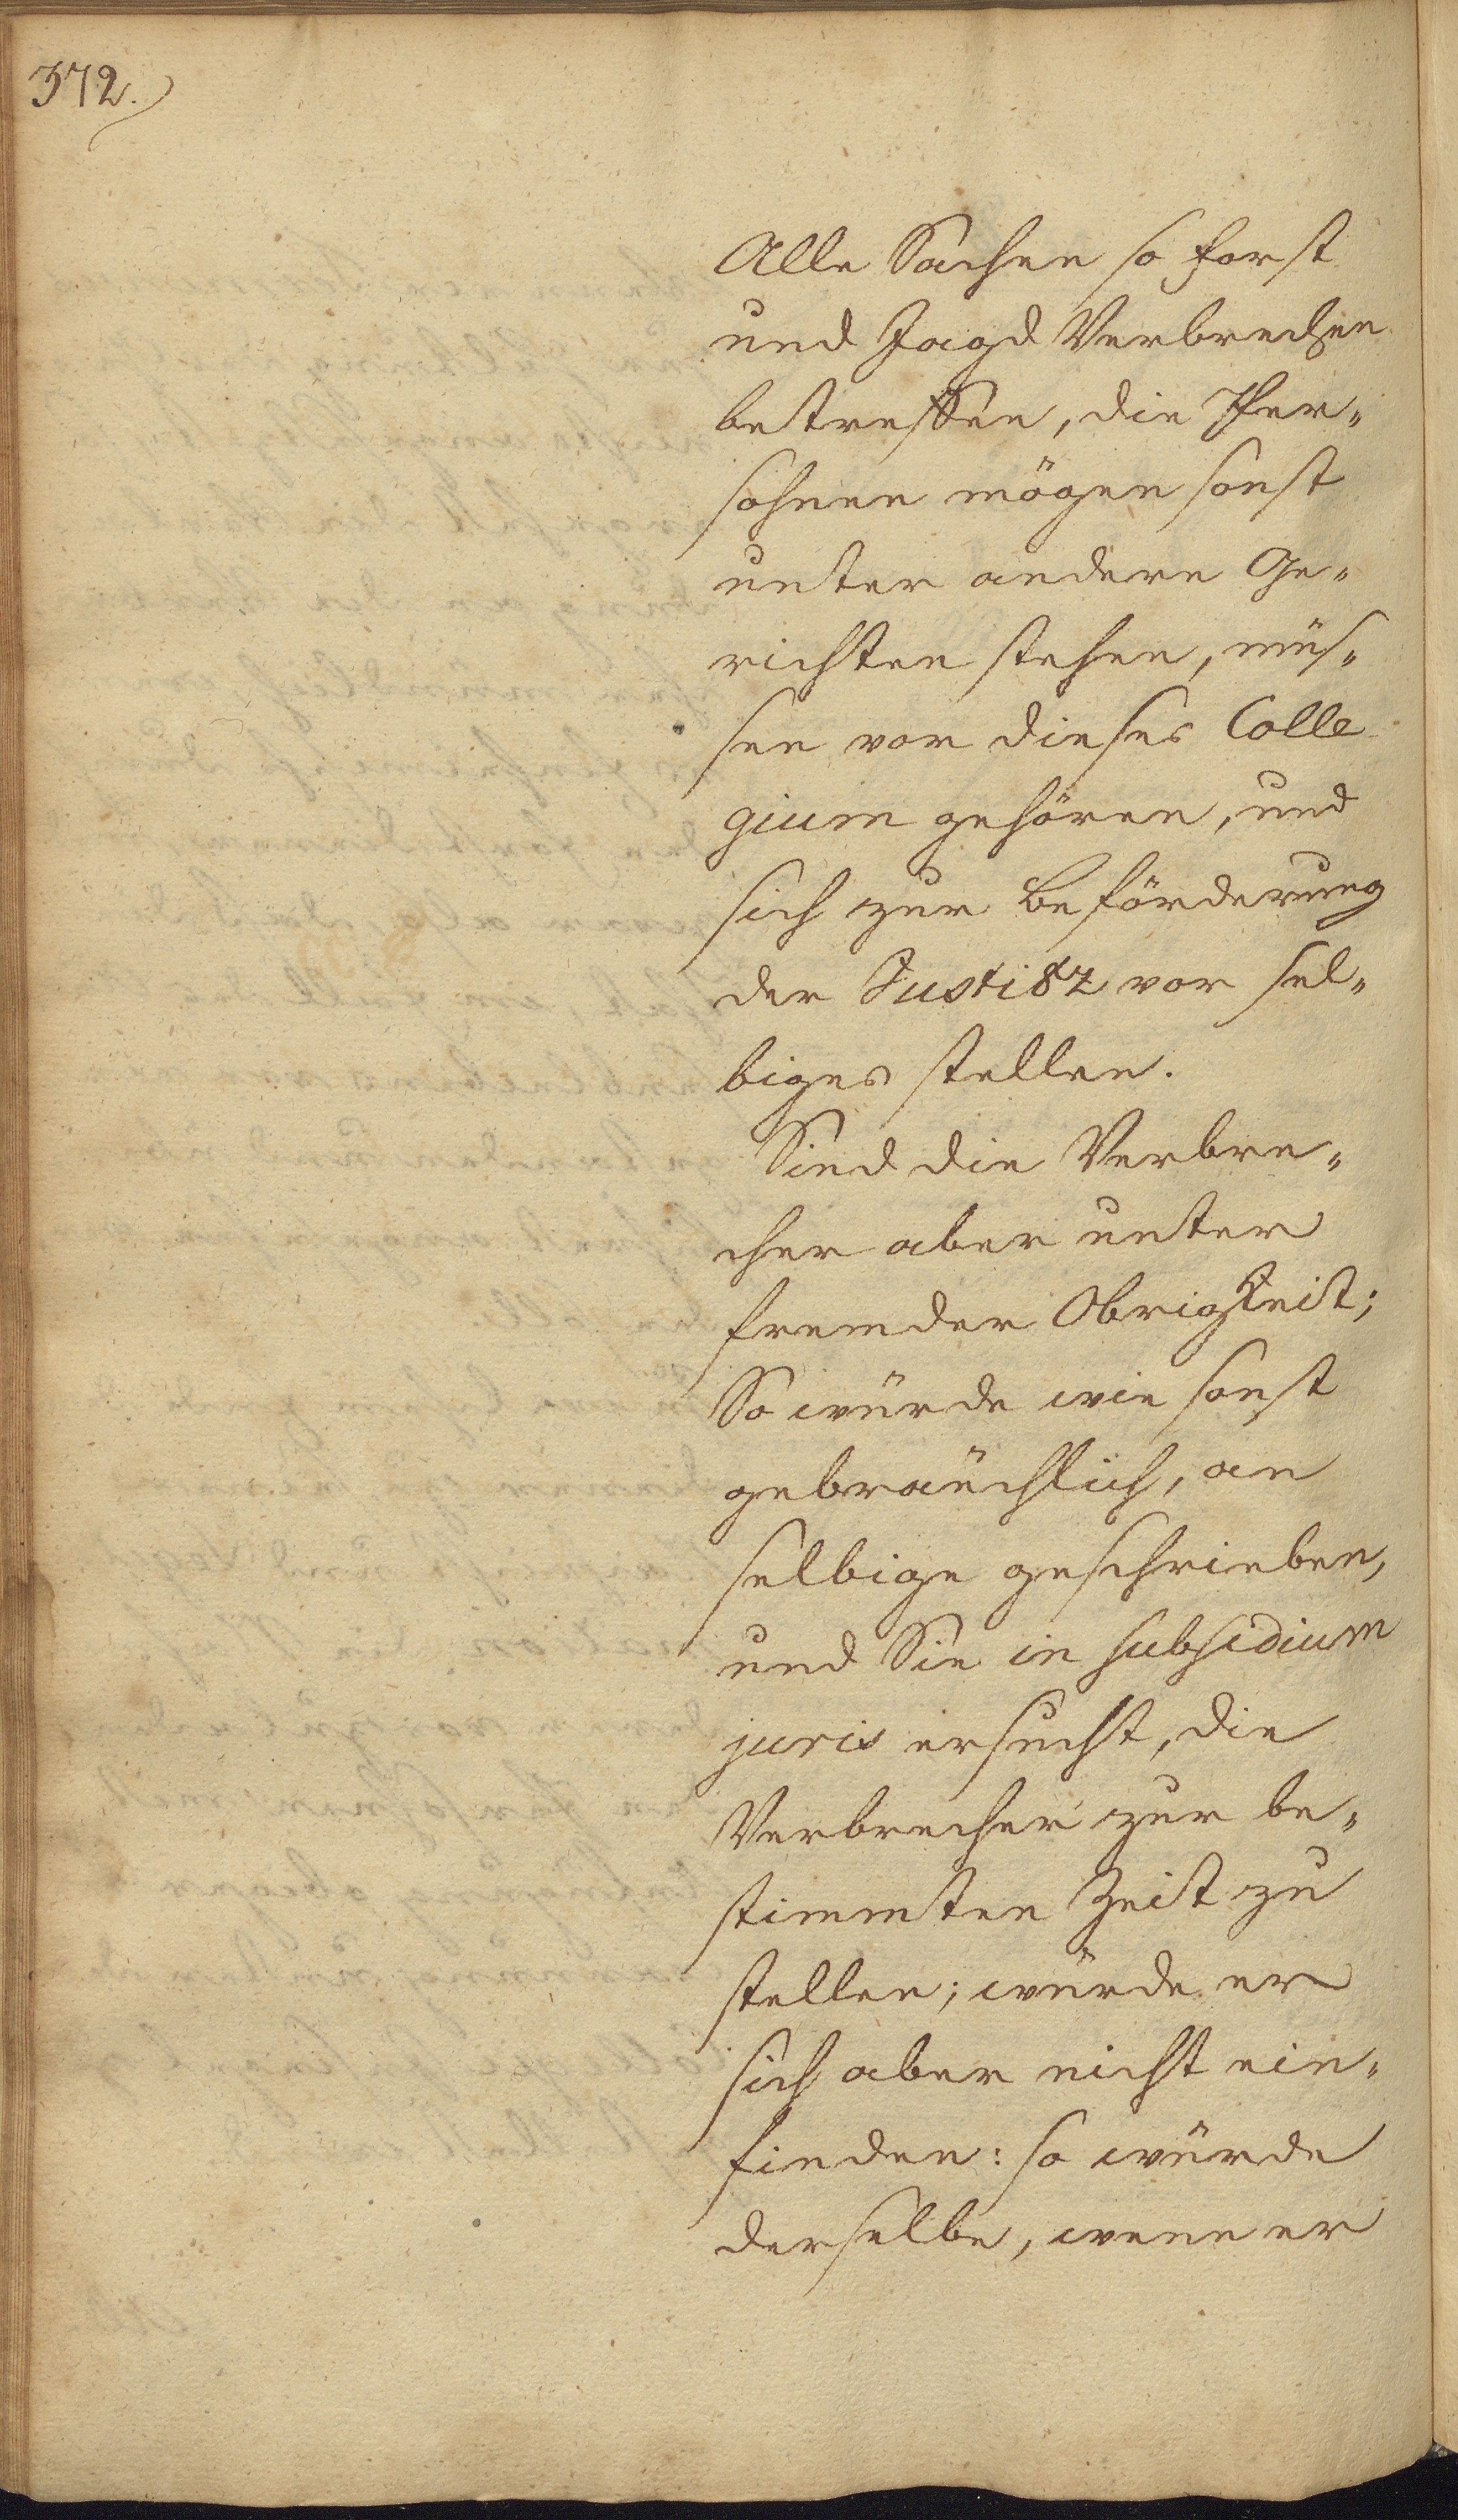 372.
Alle Sachen so forst
und Jagd Verbrechen
betreffen, die Per„
sohnen mögen sonst
unter andere Ge„
richten stehen, müs„
sen vor dieses Colle
gium gehören, und
sich zur Beförderung
der Justitz vor sel„
biges stellen.
Sind die Verbre„
cher aber unter
fremder Obrigkeit;
So würde wie sonst
gebräuchlich, an
selbige geschrieben,
und Sie in subsidium
juris ersucht, die
Verbrecher zur be„
stimmten Zeit zu
stellen; würde er
sich aber nicht ein„
finden: so würde
derselbe, wenn er